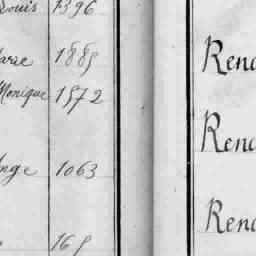 Louis 1396
Marie 1889
Monique 1572
Ange 1063
169
Rena
Rena
Rena